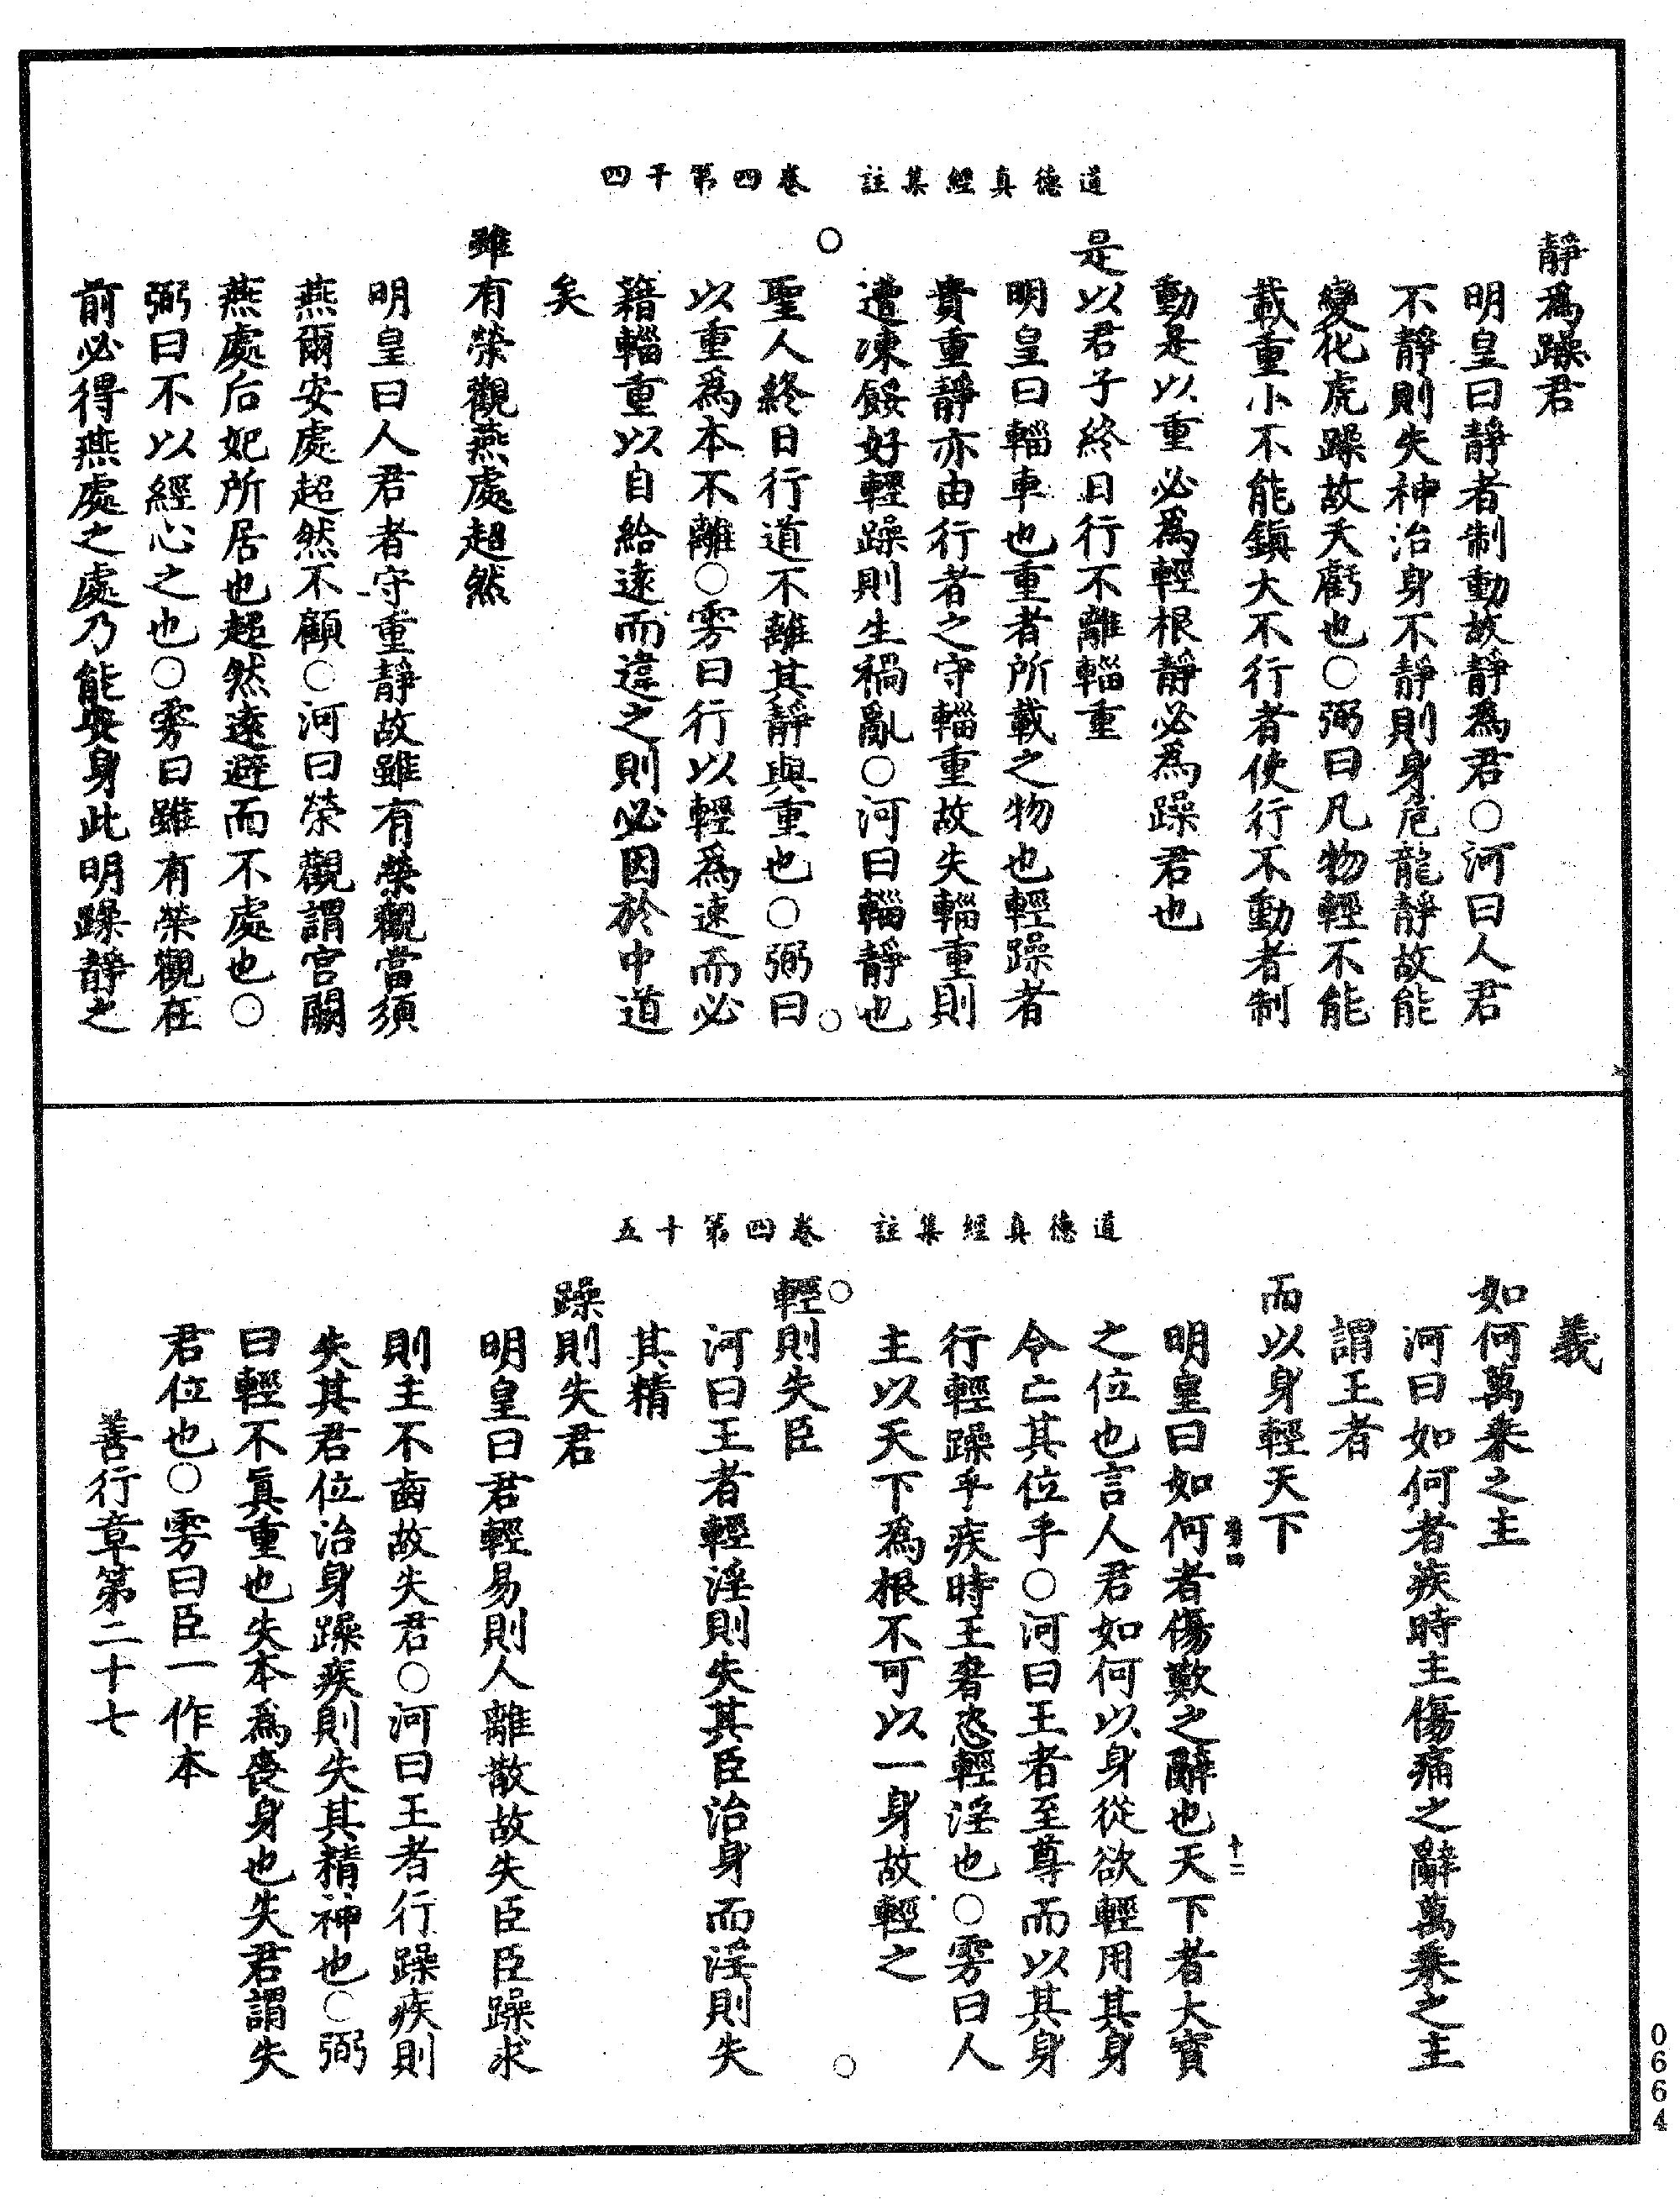 道德真經集註　卷四第十四
靜爲躁君
明皇曰靜者制動故靜爲君○河曰人君
不靜則失神治身不靜則身危龍靜故能
變化虎躁故夭虧也○弼曰凡物輕不能
載重小不能鎮大不行者使行不動者制
動是以重必爲輕根靜必爲躁君也
是以君子終日行不離輜重
明皇曰輜車也重者所載之物也輕躁者
貴重靜亦由行者之守輜重故失輜重則
遭凍餒好輕躁則生禍亂○河曰輜靜也
聖人終日行道不離其靜與重也○弼曰
以重爲本不離○雱曰行以輕爲速而必
籍輜重以自給遠而違之則必困於中道
矣
雖有榮觀燕處超然
明皇曰人君者守重靜故雖有榮觀當須
燕爾安處超然不顧○河曰榮觀謂宫闕
燕處后妃所居也超然遠避而不處也○
弼曰不以經心之也○雱曰雖有榮觀在
前必得燕處之處乃能安身此明躁靜之
道德真經集註　卷四第十五
義
如何萬乘之主
河曰如何者疾時主傷痛之辭萬乘之主
謂王者
而以身輕天下
明皇曰如何者傷歎之辭也天下者大寶
之位也言人君如何以身從欲輕用其身
令亡其位乎○河曰王者至尊而以其身
行輕躁乎疾時王奢恣輕淫也○雱曰人
主以天下爲根不可以一身故輕之
輕則失臣
河曰王者輕淫則失其臣治身而淫則失
其精
躁則失君
明皇曰君輕易則人離散故失臣臣躁求
則主不齒故失君○河曰王者行躁疾則
失其君位治身躁疾則失其精神也○弼
曰輕不眞重也失本爲喪身也失君謂失
君位也○雱曰臣一作本
善行章第二十七
十二
0664